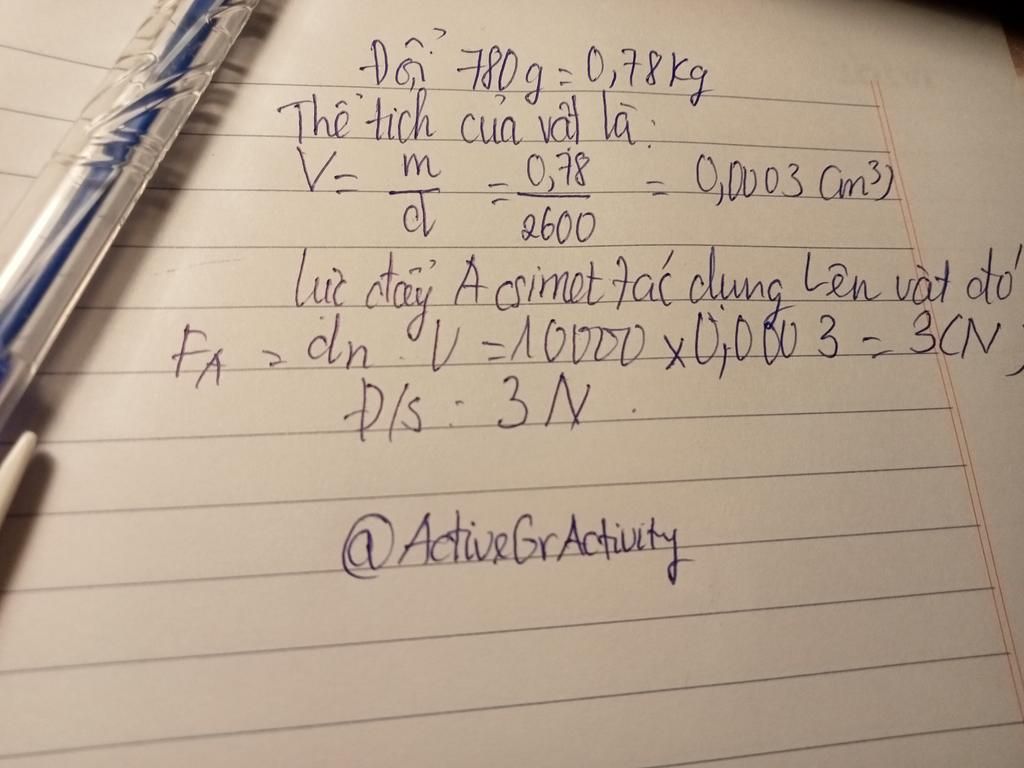 Đổi 780g = 0,78kg
Thể tích của vật là:
V = m/d = 0,78/2600 = 0,0003 (m³)
lực đẩy Acsimet tác dụng lên vật đó
FA = dn . V = 10000 x 0,0003 = 3(N)
Đ/s : 3 N .
@ActiveGrActivity